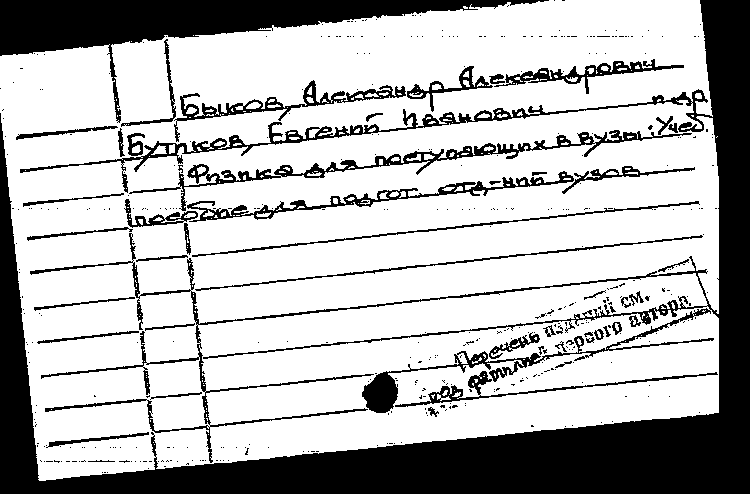 Быков, Александр Александрович
Бутиков, Евгений Иванович и др
Физика для поступающих в вузы: Учеб.
пособие для подгот. отд-ний вузов
Перечень изданий см.
под фамилией первого автора